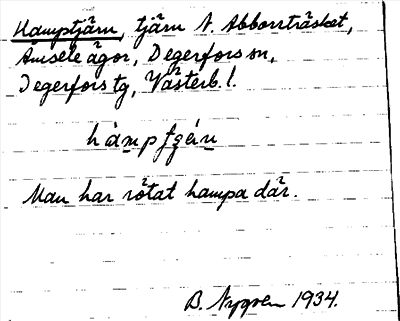 Hamptjärn, tjärn N. Abborrträsket,
Åmsele ägor, Degerfors sn,
Degerfors tg, Västerb. l.
Man har rötat hampa där.
B. Nygren 1934.